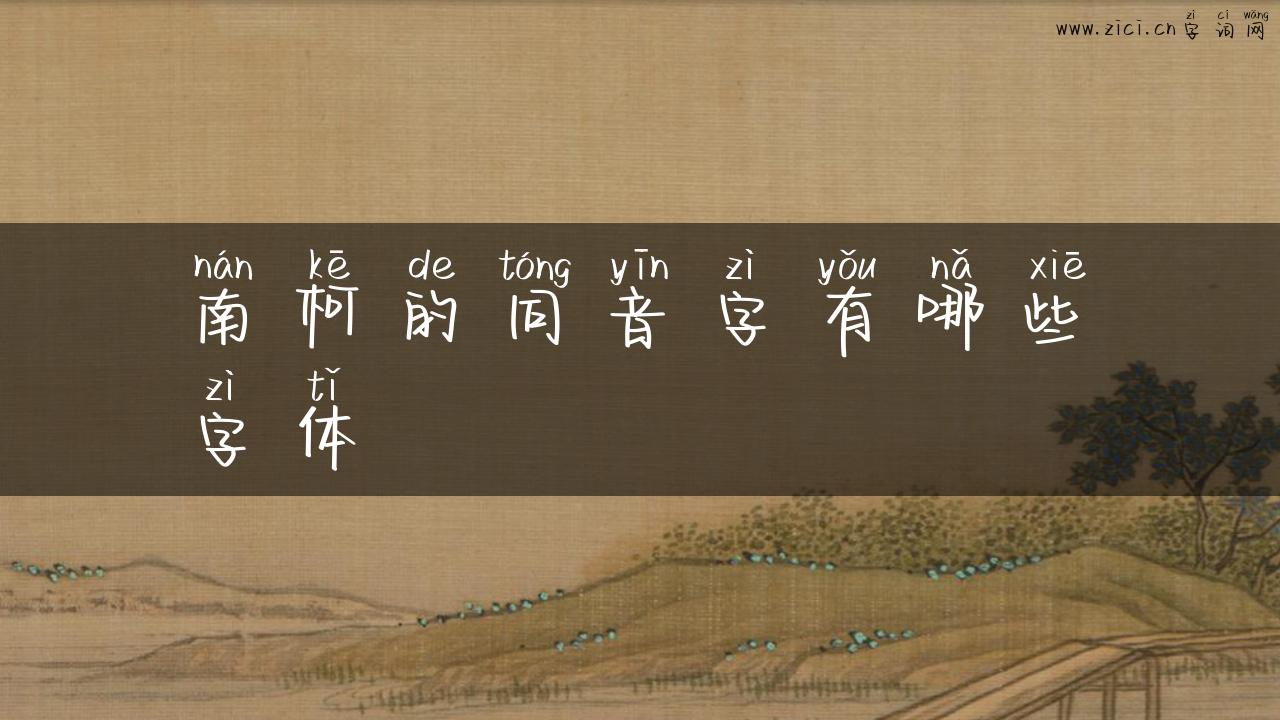 zì cí wǎng
www.zici.cn字词网
nán kē de tóng yīn zì yǒu nǎ xiē
南柯的同音字有哪些
zì tǐ
字体